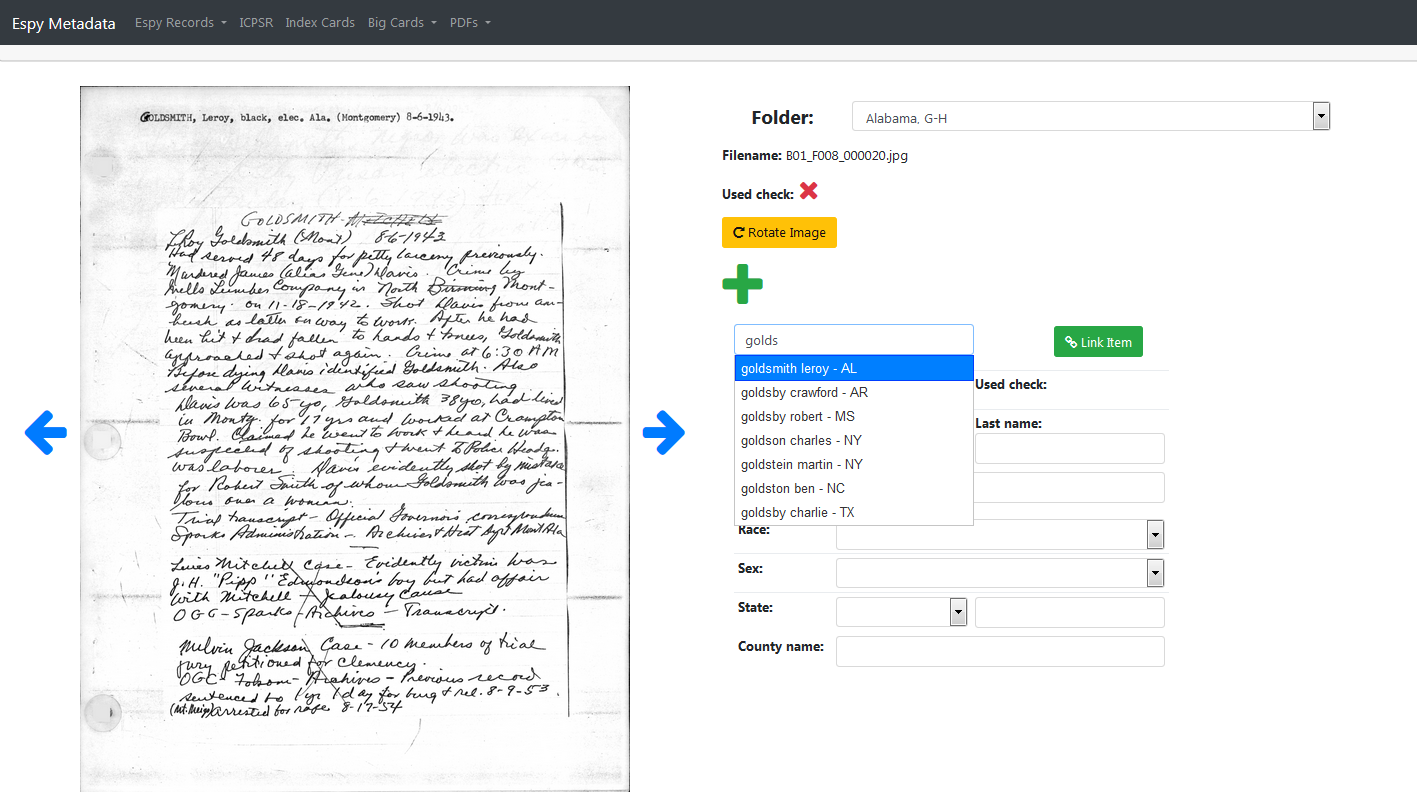 Espy Metadata Espy Records ICPSR Index Cards Big Cards PDFs
GOLDSMITH, Leroy, black, elec. Ala. (Montgomery) 8-6-1943.
GOLDSMITH - Mitchell
LRoy Goldsmith (Mont) 8-6-1943
Had served 48 days for petty larceny previously.
Murdered James (alias Gene) Davis. Crime by
Mills Lumber Company in North Birming Mont-
gomery. on 11-18-1942. Shot Davis from am-
bush as latter on way to work. After he had
been hit & had fallen to hands & knees, Goldsmith
approached & shot again. Crime at 6:30 AM
Before dying Davis identified Goldsmith. Also
several witnesses who saw shooting
Davis was 65 yo, Goldsmith 38 yo, had lived
in Montg. for 17 yrs and worked at Crampton
Bowl. Claimed he went to work & heard he was
suspected of shooting & went to Police Headq.
was laborer. Davis evidently shot by mistake
for Robert Smith of whom Goldsmith was jea-
lous over a woman.
Trial transcript - Official Governor's correspondence
Sparks Administration - Archives & Hist Dept Mont Ala
Lewis Mitchell Case - Evidently victim was
J.H. "Pipp" Edmondson's boy but had affair
with Mitchell - Jealousy cause
OGC - Sparks - Archives - Transcript.
Melvin Jackson Case - 10 members of trial
jury petitioned for clemency.
OGC - Folsom - Archives - Previous record
sentenced to 1 yr 1 day for burg & rel. 8-9-53.
(Mt. Meigs) arrested for rape 8-17-54
Folder: Alabama, G-H
Filename: B01_F008_000020.jpg
Used check:
Rotate Image
golds
Link Item
goldsmith leroy - AL
goldsby crawford - AR
goldsby robert - MS
goldson charles - NY
goldstein martin - NY
goldston ben - NC
goldsby charlie - TX
Used check:
Last name:
Race:
Sex:
State:
County name: